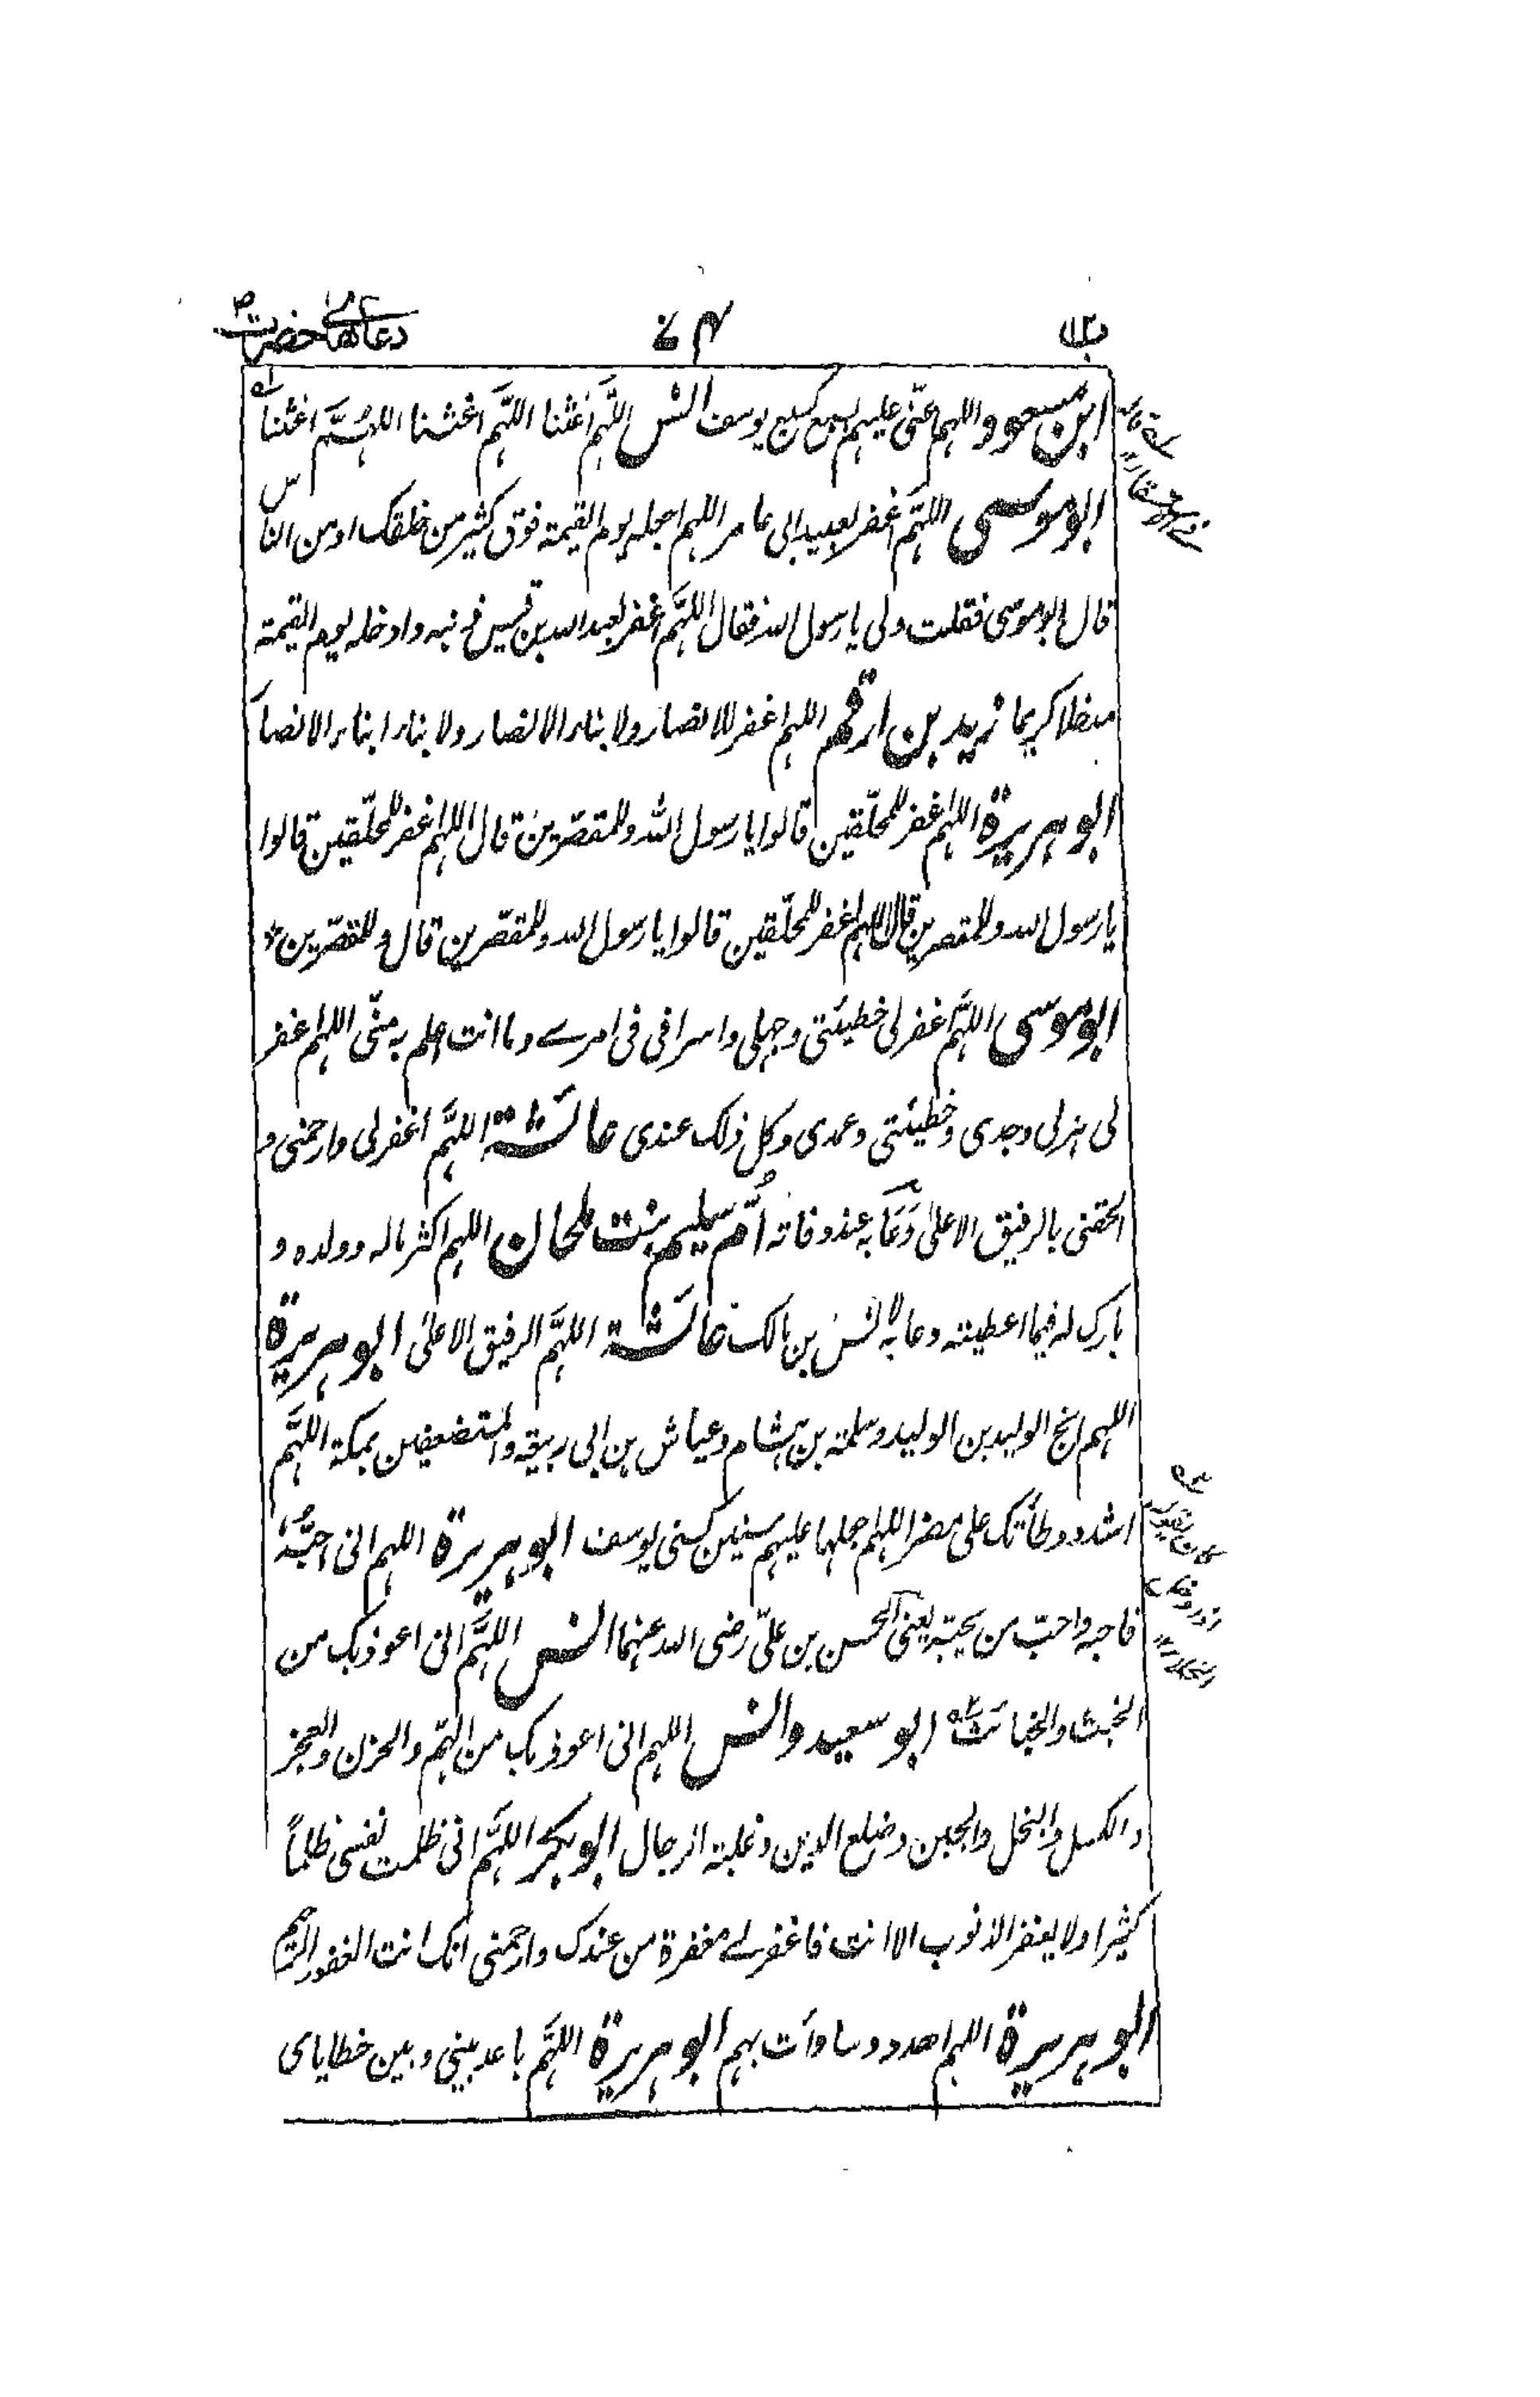 دعاهای حضرت ص
ابن مسعود اللهم اعنّی علیهم بسبع کسبع یوسف انس اللّٰهم اغثنا اللّٰهم اغثنا اللّٰهم اغثنا
ابو موسی اللّٰهم اغفر لعبید ابی عامر اللهم اجعله یوم القیمة فوق کثیر من خلقک او من الناس
قال ابو موسی فقلت ولی یا رسول الله فقال اللّٰهم اغفر لعبد الله بن قیس ذنبه وادخله یوم القیمة
مدخلا کریما زید بن ارقم اللهم اغفر للانصار ولابناء الانصار ولابناء ابناء الانصار
ابو هریرة اللهم اغفر للمحلّقین قالوا یا رسول الله وللمقصّرین قال اللهم اغفر للمحلّقین قالوا
یا رسول الله وللمقصرین قال اللهم اغفر للمحلّقین قالوا یا رسول الله وللمقصّرین قال وللمقصّرین
ابو موسی اللّٰهم اغفر لی خطیئتی وجهلی واسرافی فی امرے وما انت اعلم به منّی اللهم اغفر
لی هزلی وجدی وخطیئتی وعمدی وکل ذلک عندی عائشة اللّٰهم اغفر لی وارحمنی و
الحقنی بالرفیق الاعلیٰ دَعَا به عند وفاته اُمّ سلیم بنت ملحان اللهم اکثر ماله وولده و
بارک له فیما اعطیته دعا به لانس بن مالک عائشة اللّٰهم الرفیق الاعلیٰ ابو هریرة
اللهم انج الولید بن الولید وسلمة بن هشام وعیاش بن ابی ربیعة والمستضعفین بمکة اللّٰهم
اشدد وطأتک علی مضر اللهم اجعلها علیهم سنین کسنی یوسف ابو هریرة اللهم انی احبّه
فاحبه واحبّ من یحبّه یعنی الحسن بن علیّ رضی الله عنهما انس اللّٰهم انی اعوذ بک من
الخبث والخبائث ابو سعید وانس اللهم انی اعوذ بک من الهمّ والحزن والعجز
والکسل والبخل والجبن وضلع الدین وغلبة الرجال ابو بکر اللّٰهم انی ظلمت نفسی ظلماً
کثیرا ولا یغفر الذنوب الا انت فاغفر لے مغفرة من عندک وارحمنی انک انت الغفور الرحیم
ابو هریرة اللهم اهد دوسا وأت بهم ابو هریرة اللّٰهم باعد بینی وبین خطایای